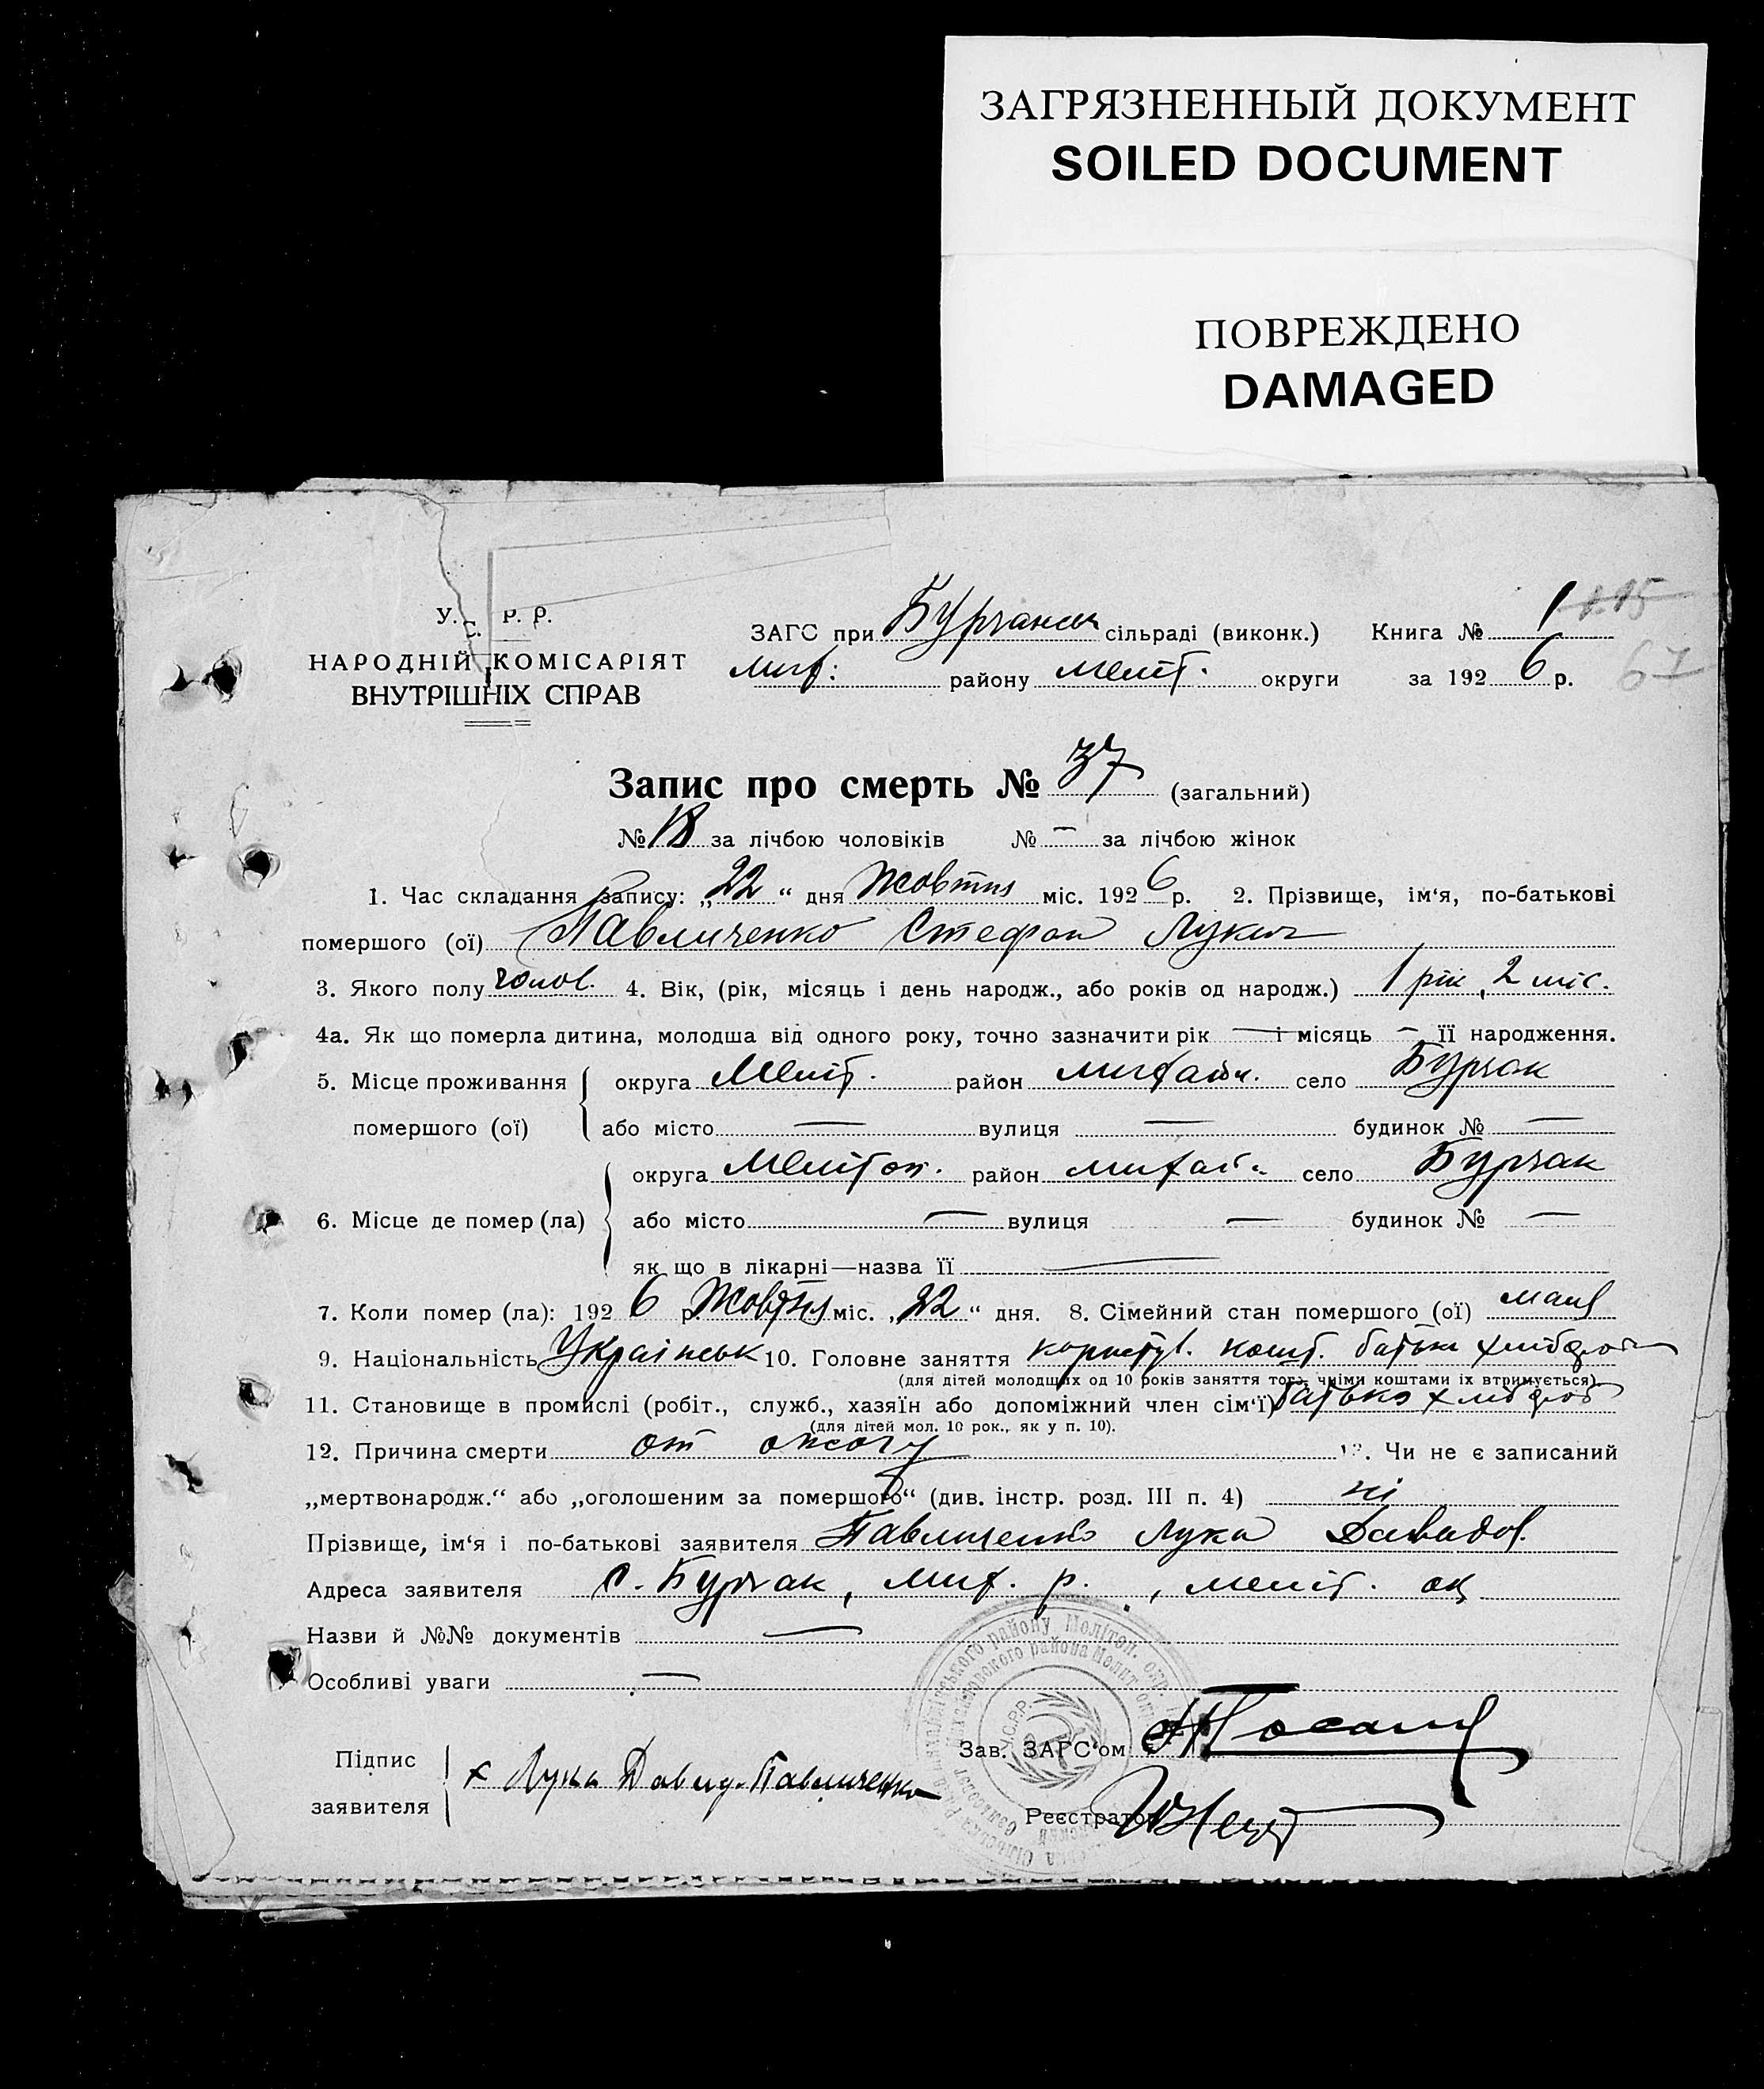 ЗАГРЯЗНЕННЫЙ ДОКУМЕНТ
SOILED DOCUMENT
ПОВРЕЖДЕНО
DAMAGED
У. С. Р. Р.
НАРОДНІЙ КОМІСАРІЯТ
ВНУТРІШНІХ СПРАВ
ЗАГС при Бурчанськ сільраді (виконк.) Книга № 1
Мих: району Меліт. округи за 1926 р. 67
Запис про смерть № 37 (загальний)
№ 18 за лічбою чоловіків № — за лічбою жінок
1. Час складання запису: „22“ дня Жовтня міс. 1926 р. 2. Прізвище, ім‘я, по-батькові
помершого (ої) Павличенко Стефан Лукич
3. Якого полу чолов. 4. Вік, (рік, місяць і день народж., або років од народж.) 1 рік, 2 міс.
4а. Як що померла дитина, молодша від одного року, точно зазначити рік — і місяць — її народження.
5. Місце проживання округа Меліт. район Михайл. село Бурчак
помершого (ої) або місто — вулиця — будинок № —
округа Мелітоп. район Михай село Бурчак
6. Місце де помер (ла) або місто — вулиця — будинок № —
як що в лікарні—назва її —
7. Коли помер (ла): 1926 р. Жовтня міс. „22“ дня. 8. Сімейний стан помершого (ої)
9. Національність Українськ 10. Головне заняття користув. кошт. батьки хлібороби
(для дітей молодших од 10 років заняття того, чиїми коштами їх втримується)
11. Становище в промислі (робіт., служб., хазяїн або допоміжний член сім‘ї) батько хлібороб
(для дітей мол. 10 рок., як у п. 10).
12. Причина смерти от ожогу 13. Чи не є записаний
„мертвонародж.“ або „оголошеним за помершого“ (див. інстр. розд. III п. 4) ні
Прізвище, ім‘я і по-батькові заявителя Павличенко Лука Давидов.
Адреса заявителя с. Бурчак, Мих. р., Меліт. ок
Назви й №№ документів —
Особливі уваги —
Підпис
заявителя х Лука Давид. Павличенко
Зав. ЗАГС‘ом
Реєстратор